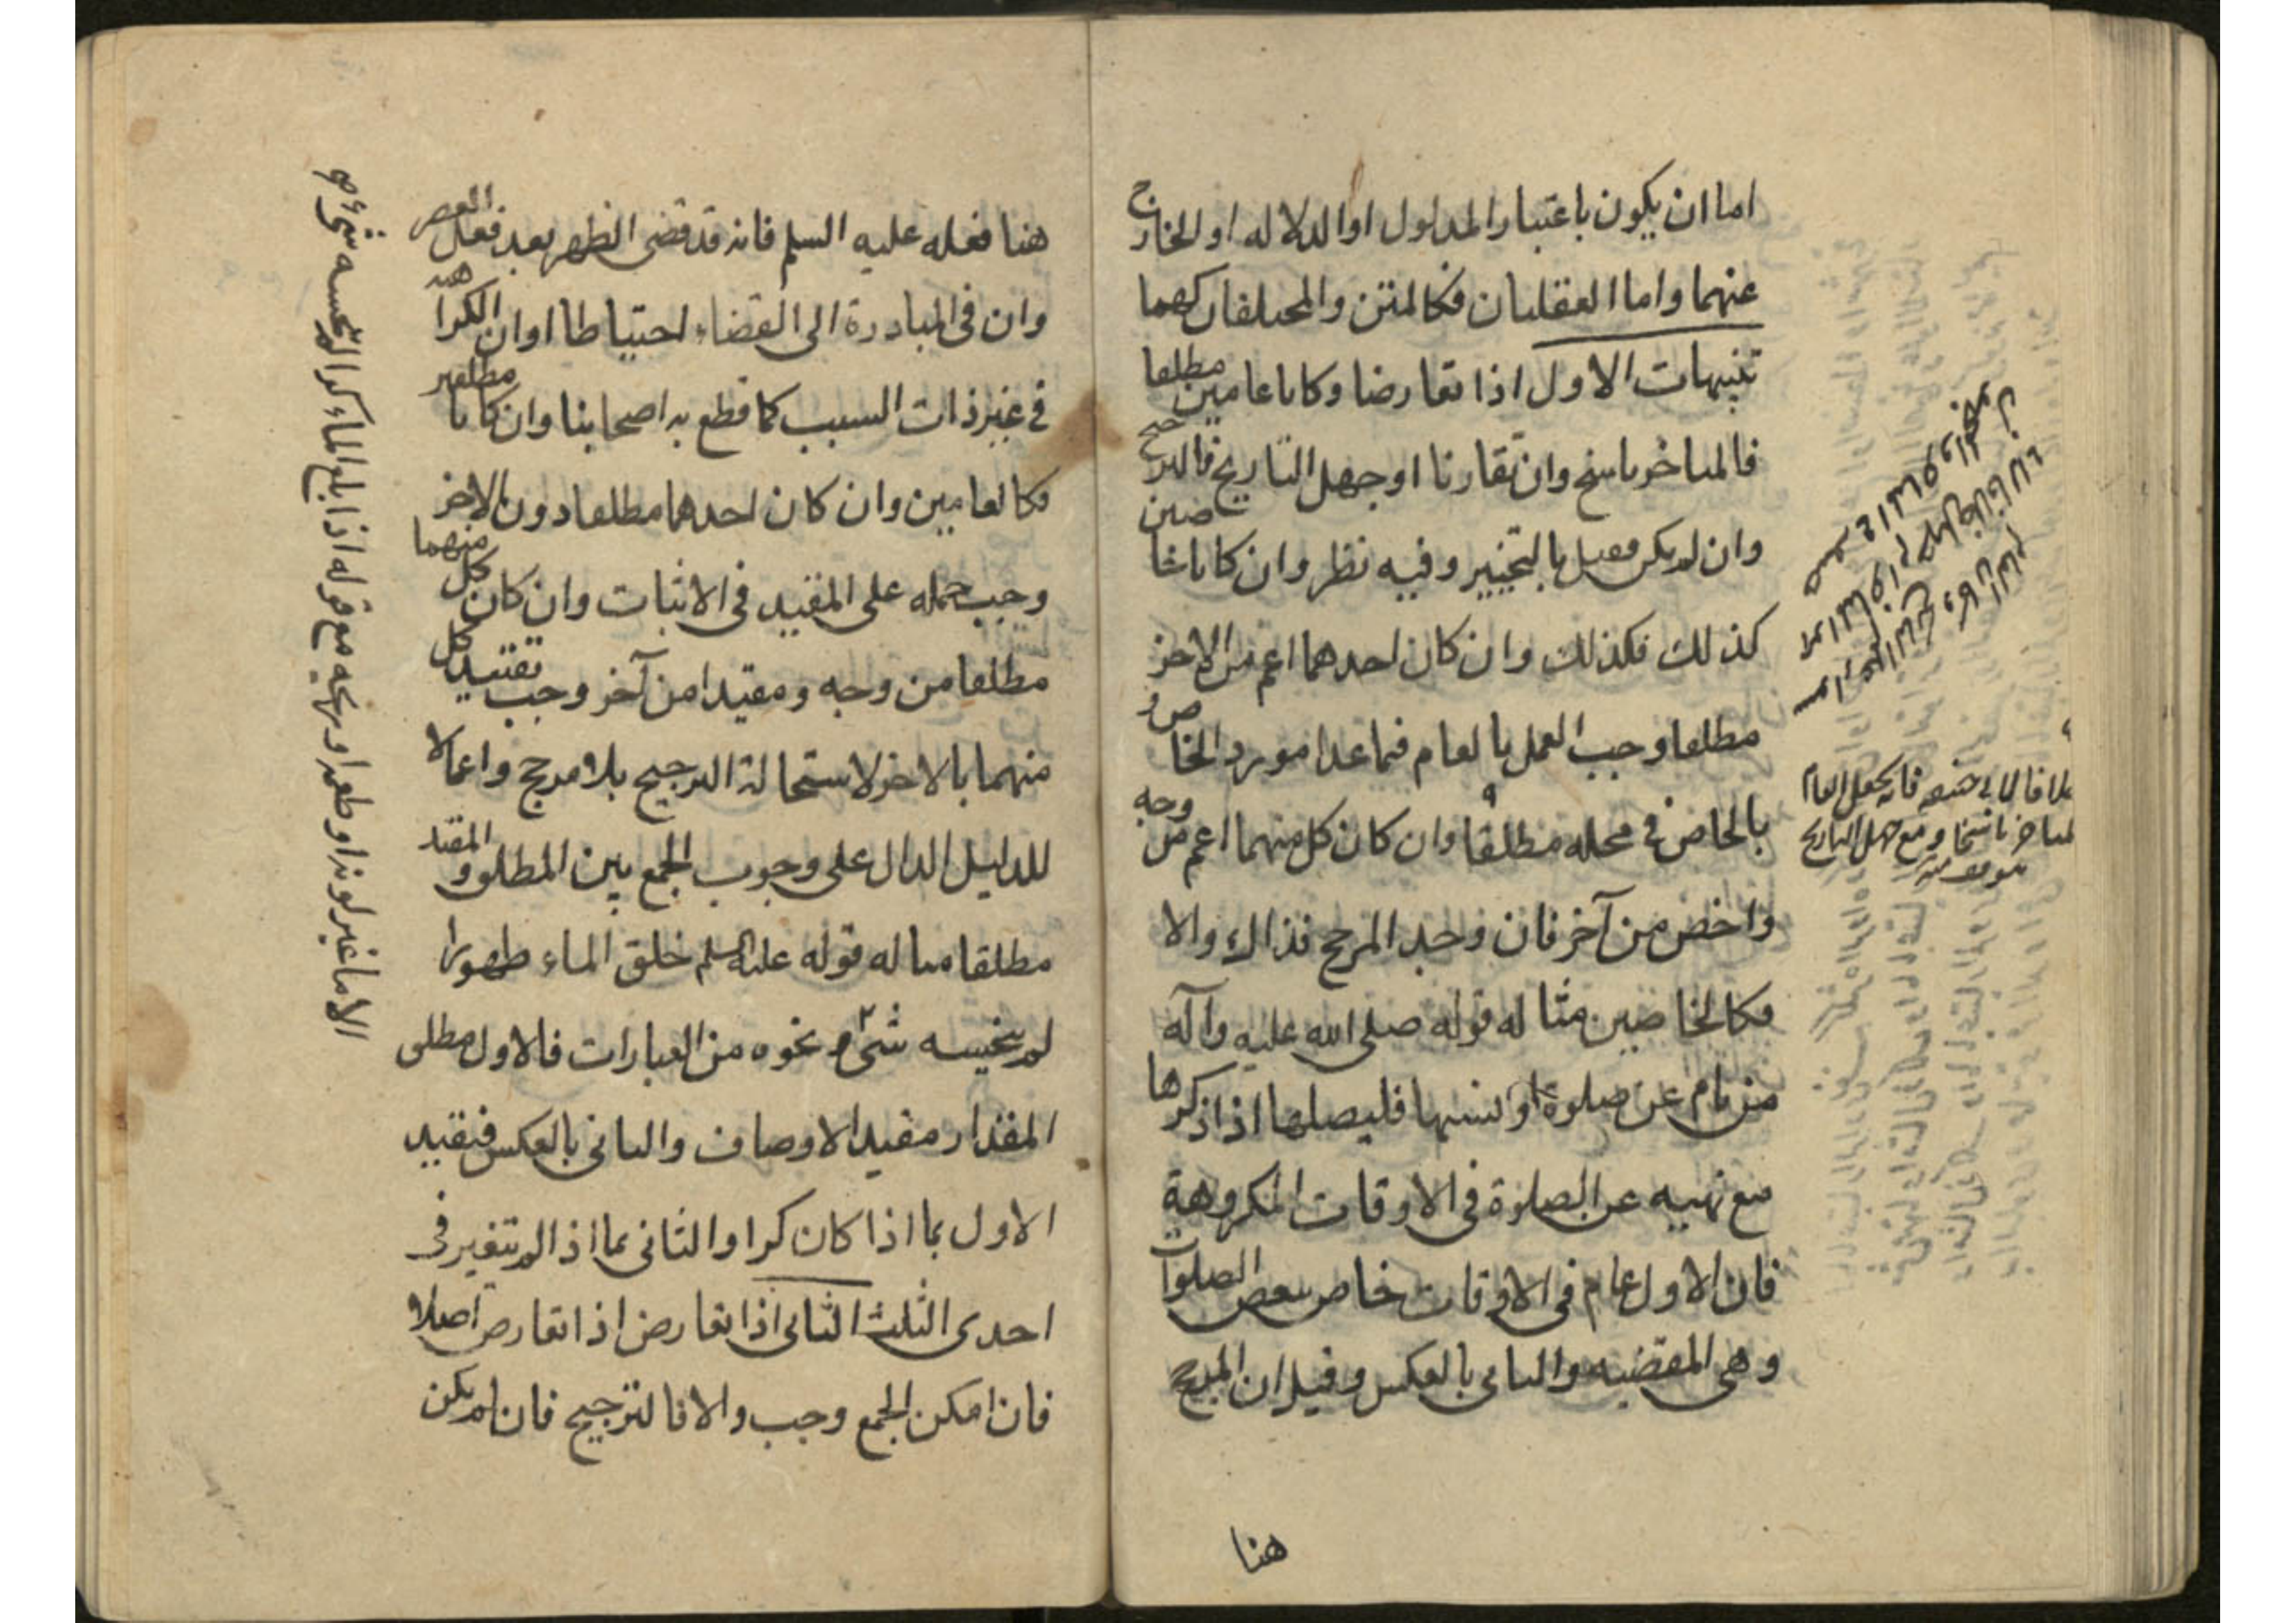 اما ان يكون باعتبار المدلول او الدلاله او الخارج
عنهما واما العقليان فكالمتن والمختلفان كهما
تنبيهات الاول اذا تعارضا وكانا عامين مطلقا
فالمتاخر ناسخ وان تقارنا او جهل التاريخ فالترجيح
وان لم يكن فقيل بالتخيير وفيه نظر وان كانا خاصين
كذلك فكذلك وان كان احدهما اعم من الاخر
مطلقا وجب العمل بالعام فيما عدا مورد الخاص و
بالخاص في محله مطلقا وان كان كل منهما اعم من وجه
واخص من آخر فان وجد المرجح فذاك والا
فكالخاصين مثاله قوله صلى الله عليه وآله
من نام عن صلوة او نسيها فليصلها اذا ذكرها
مع نهيه عن الصلوة في الاوقات المكروهة
فان الاول عام في الاوقات خاص ببعض الصلوات
وهي المقضيه والثانى بالعكس وقيل ان المرجح
هنا
خلافا لابى حنيفه فانه يجعل العام
المتاخر ناسخا ومع جهل التاريخ
هنا فعله عليه السلم فانه قد قضى الظهر بعد فعل العصر
وان في المبادرة الى القضاء احتياطا او ان الكراهه
في غير ذات السبب كما قطع به اصحابنا وان كانا مطلقين
فكالعامين وان كان احدهما مطلقا دون الاخر
وجب حمله على المقيد في الاثبات وان كان كل منهما
مطلقا من وجه ومقيدا من آخر وجب تقييد كل
منهما بالاخر لاستحالة الترجيح بلا مرجح واعمالا
للدليل الدال على وجوب الجمع بين المطلق والمقيد
مطلقا مثاله قوله عليه السلم خلق الماء طهورا
لم ينجسه شىء ونحوه من العبارات فالاول مطلق
المقدار مقيد الاوصاف والثانى بالعكس فيقيد
الاول بما اذا كان كرا والثانى بما اذا لم يتغير في
احدى الثلث الثانى اذا تعارض اذا تعارض اصلا
فان امكن الجمع وجب والا فالترجيح فان لم يكن
الا ما غير لونه او طعمه او ريحه مع قوله اذا بلغ الماء كرا لم ينجسه شىء هو